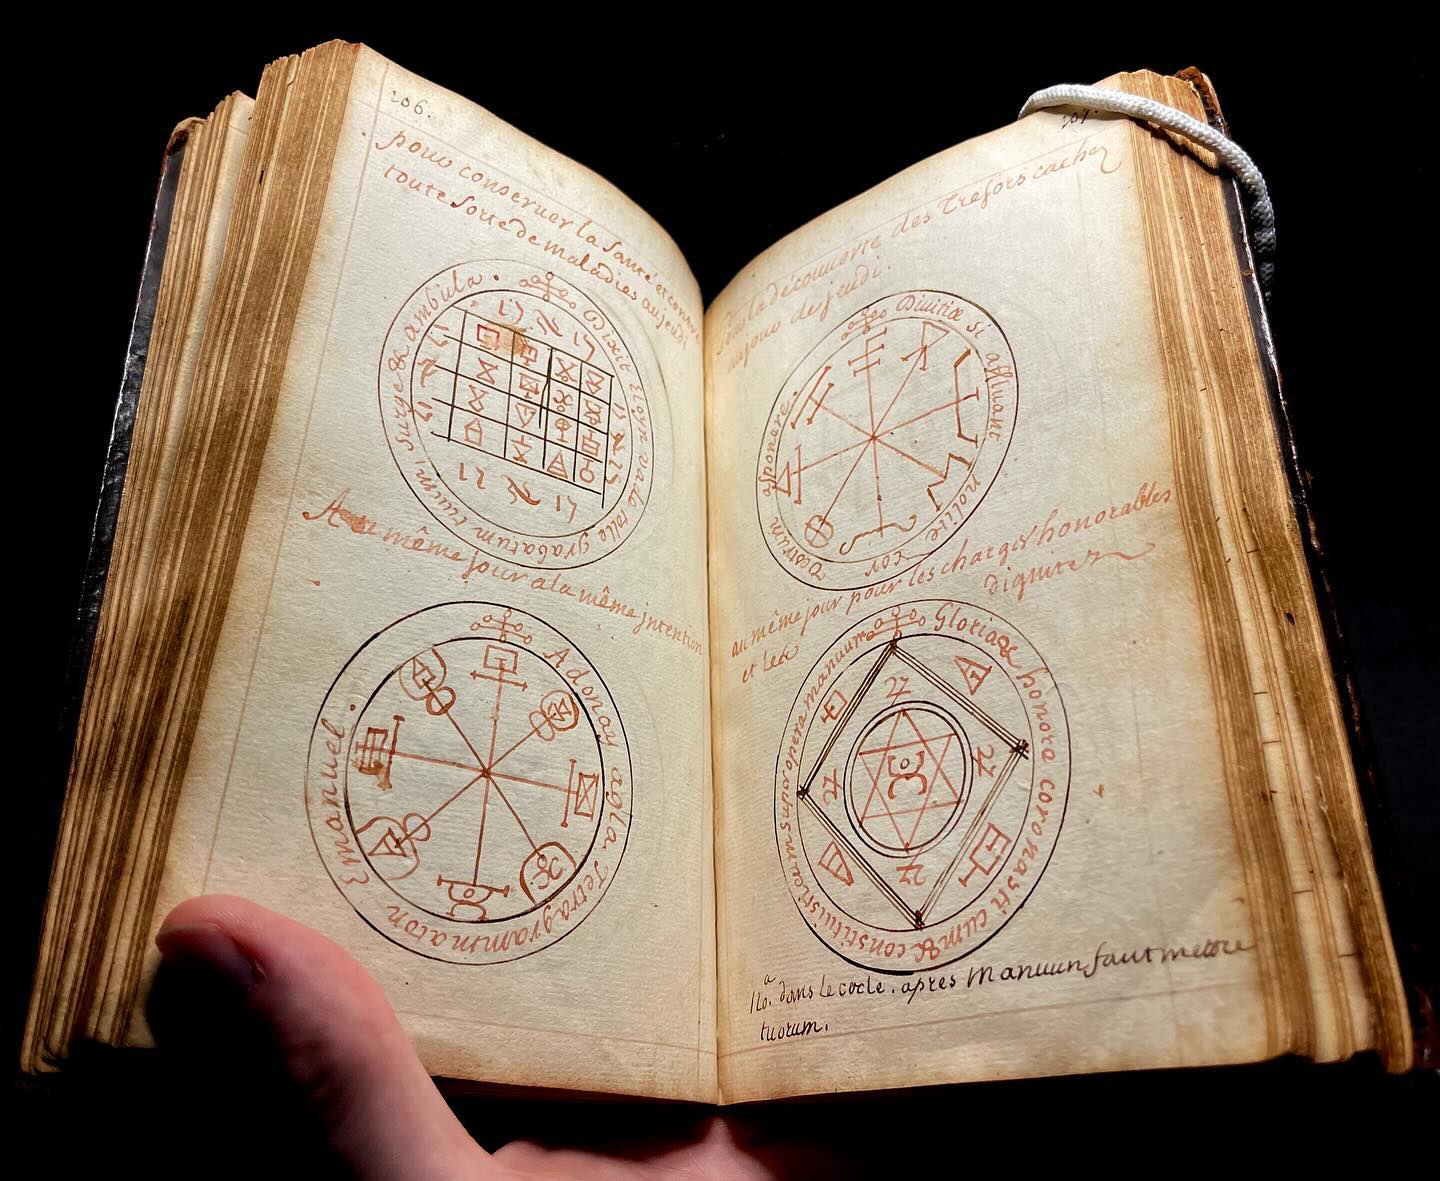 206.
pour conseruer la Santé et contre
toute Sorte de maladies au jeudi
Dixit Eloyn vade tolle grabatum tuum, surge & ambula.
Au même jour a la même jntention
Adonay agla Tetragrammaton Emanuel.
207.
la découuerte des tresors cachez
au jour de jeudi.
Divitiæ si affluant nolite cor vestrum apponere.
au même jour pour les charges honorables
et les dignitez
Gloria & honore coronasti eum & constituisti eum super opera manuum
Na. dans le cercle. apres manuum faut mettre
tuorum.